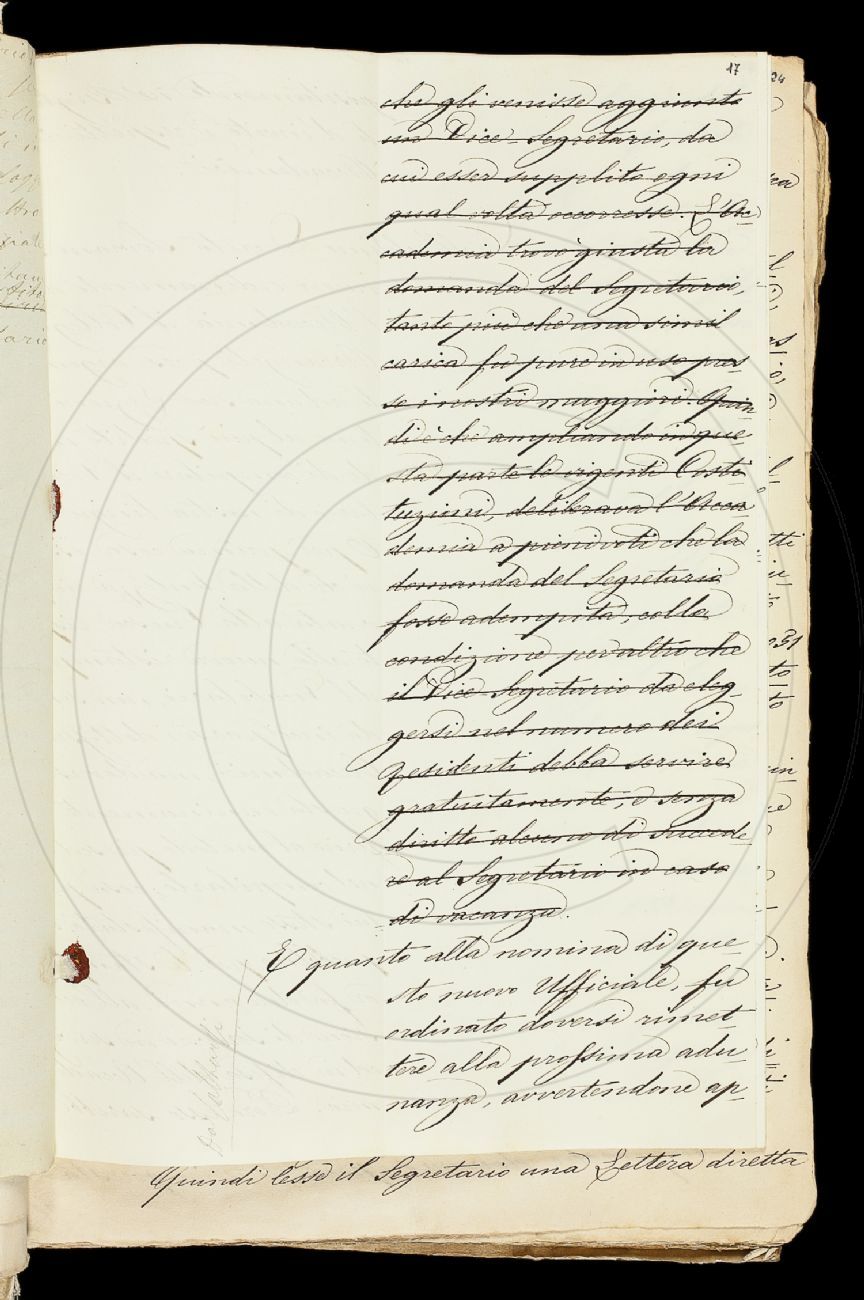 17
24
che gli venisse aggiunto
un Vice-Segretario, da
cui esser supplito ogni
qual volta occorresse. L'Ac-
cademia trovò giusta la
domanda del Segretario,
tanto più che una simil
carica fu pure in uso pres-
so i nostri maggiori. Quin-
di è che ampliando in que-
sta parte le vigenti Costi-
tuzioni, deliberava l'Acca-
demia a pieni voti che la
domanda del Segretario
fosse adempita, colla
condizione peraltro che
il Vice Segretario da eleg-
gersi nel numero dei
Residenti debba servire
gratuitamente, e senza
diritto alcuno di succede-
re al Segretario in caso
di vacanza.
E quanto alla nomina di que-
sto nuovo Ufficiale, fu
ordinato doversi rimet-
tere alla prossima adu-
nanza, avvertendone ap-
Quindi lesse il Segretario una Lettera diretta